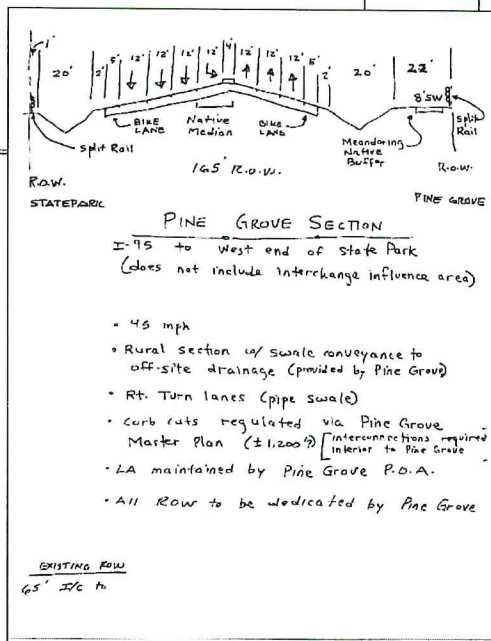 1'
20' 2' 5' 12' 12' 12' 12' 4' 12' 12' 12' 5' 2' 20' 22'
8' SW
BIKE LANE
Native Median
BIKE LANE
Split Rail
Split Rail
Meandering Native Buffer
165' R.O.W.
R.O.W.
R.O.W.
STATE PARK
PINE GROVE
PINE GROVE SECTION
I-95 to west end of State Park
(does not include interchange influence area)
• 45 mph
• Rural section w/ swale conveyance to
off-site drainage (provided by Pine Grove)
• Rt. Turn lanes (pipe swale)
• Curb cuts regulated via Pine Grove
Master Plan (± 1,200'?) [interconnections required
interior to Pine Grove
• LA maintained by Pine Grove P.O.A.
• All ROW to be dedicated by Pine Grove
EXISTING ROW
65' I/C to